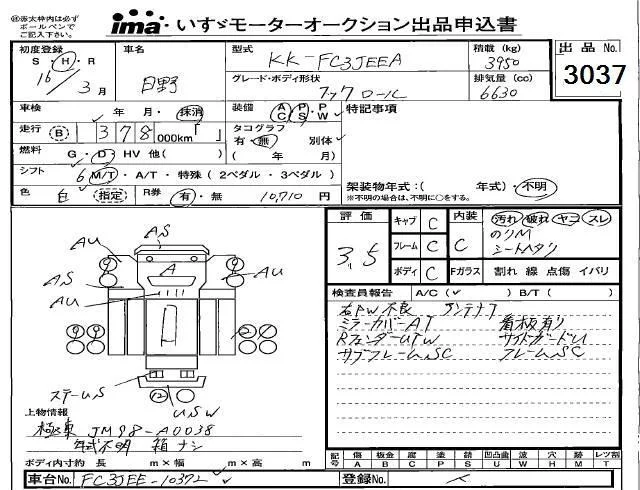 ㊟赤太枠内は必ず
ボールペンで
ご記入下さい。
ima いすゞモーターオークション出品申込書
初度登録
S・H・R
16 / 3 月
車名
日野
型式
KK-FC3JEEA
グレード・ボディ形状
フックロール
積載(kg)
3950
排気量(cc)
6630
出品No.
3037
車検
年 月・抹消
装備
AC PS PW
特記事項
走行 B 378 000km「 」
タコグラフ
有・無 別体
( 年 月)
燃料
G・D・HV 他( )
シフト
6 M/T・A/T・特殊(2ペダル・3ペダル)
色
白 指定
R券
有・無 10,710 円
架装物年式:( 年式)・不明
※不明の場合は、不明に○をする。
評価
3.5
キャブ C
フレーム C
ボディ C
内装
C
Fガラス
汚れ 破れ ヤコ スレ
のりM
シートヘタリ
割れ 線 点傷 イバリ
AS
AU
AU
AS
A
AU
ステーS
USW
検査員報告 A/C( ) B/T( )
右PW不良 アンテナT
ミラーカバーAT 看板有り
RフェンダーUTW サイドガードU
サブフレームSC フレームSC
上物情報
極東 JM98-A0038
年式不明 箱ナシ
ボディ内寸約 長 m×幅 m×高 m
記号 傷 板金 腐 塗 錆 凹凸曲 波 穴 時目 レッツ割
A B C P S U W H M T
車台No.
FC3JEE-10372
登録No.